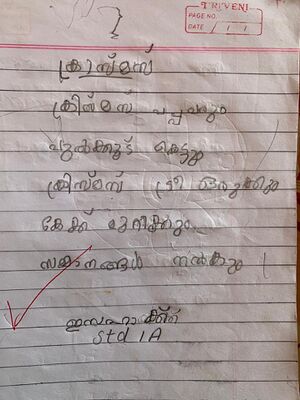 TRIVENI
PAGE NO.
DATE / /
ക്രിസ്മസ്
ക്രിസ്മസ് പപ്പയും
പുൽക്കൂട് കെട്ടും
ക്രിസ്മസ് ട്രീ ഒരുക്കും
കേക്ക് മുറിക്കും
സമ്മാനങ്ങൾ നൽകും
std 1A